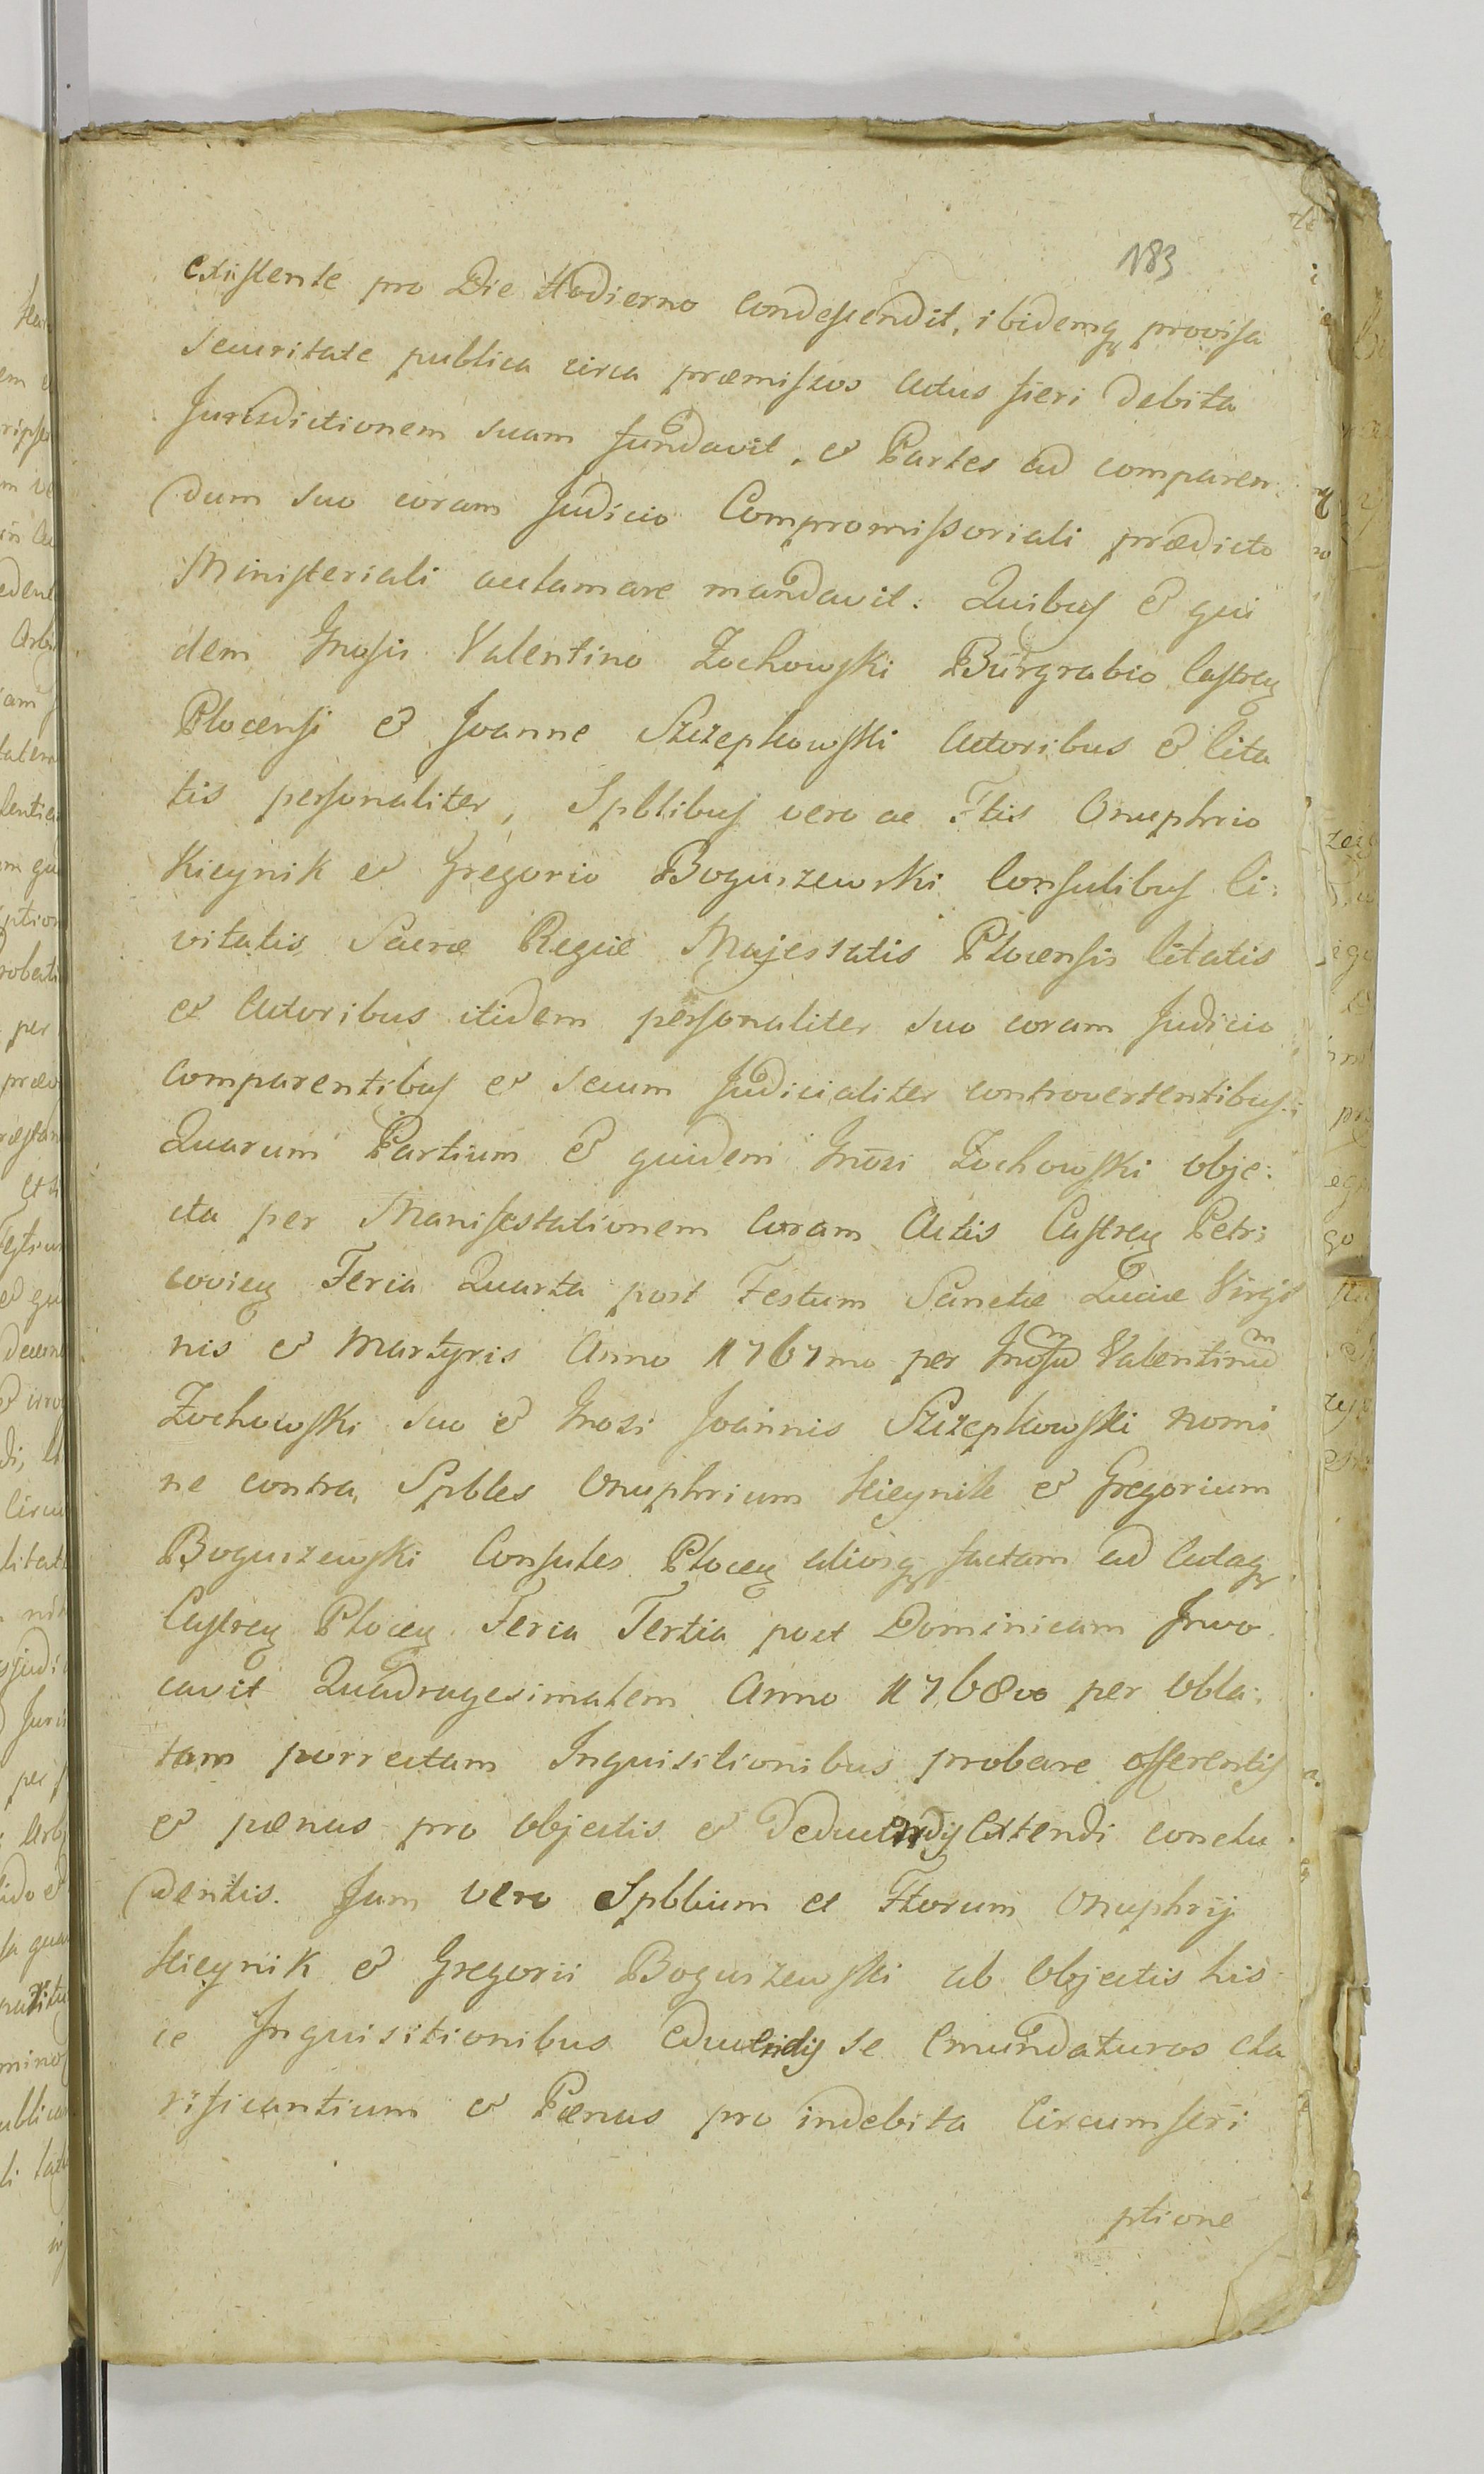 183
existente pro Die Hodierno Condescendit, ibidemq provisa
securitate publica circa præmissos Actus fieri debita
Jurisdictionem suam fundavit, & Partes ad comparen:
dum suo coram Judicio Compromissoriali prædicto
Ministeriali acclamare mandavit. Quibus & qui
dem Gnosis Valentino Zochowski Burgrabio Castren
Plocensi & Joanne Szczepkowski Actoribus & Cita
tis personaliter, Spblibus vero ac Ftis Onuphrio
Kicynik & Gregorio Boguszewski Consulibus Ci:
vitatis Sacræ Regiæ Majestatis Plocensis Citatis
& Actoribus itidem personaliter suo coram Judicio
Comparentibus & secum Judicialiter controvertentibus:
Quarum Partium & quidem Gnosi Zochowski obje:
cta per Manifestationem Coram Actis Castren Petri
covien Feria Quarta post Festum Sanctæ Luciæ Virgi
nis & Martyris Anno 1767mo per Gnosum Valentinum
Zochowski suo & Gnosi Joannis Szczepkowski nomi
ne contra Spbles Onuphrium Kicynik & Gregorium
Boguszewski Consules Plocen aliosq factam ad Actaq
Castren Plocen Feria Tertia post Dominicam Invo
cavit Quadragesimalem Anno 1768vo per Obla:
tam porrectam Inquisitionibus probare offerentis
& pænas pro objectis & Deducendis Extendi conclu
dentis. Jam vero Spblium ac Ftorum Onuphrij
Kicynik & Gregorii Boguszewski ab Objectis his
ce Inquisitionibus Educendis se Emundaturos cla
rificantium & Pænas pro indebita Circumscri
ptione